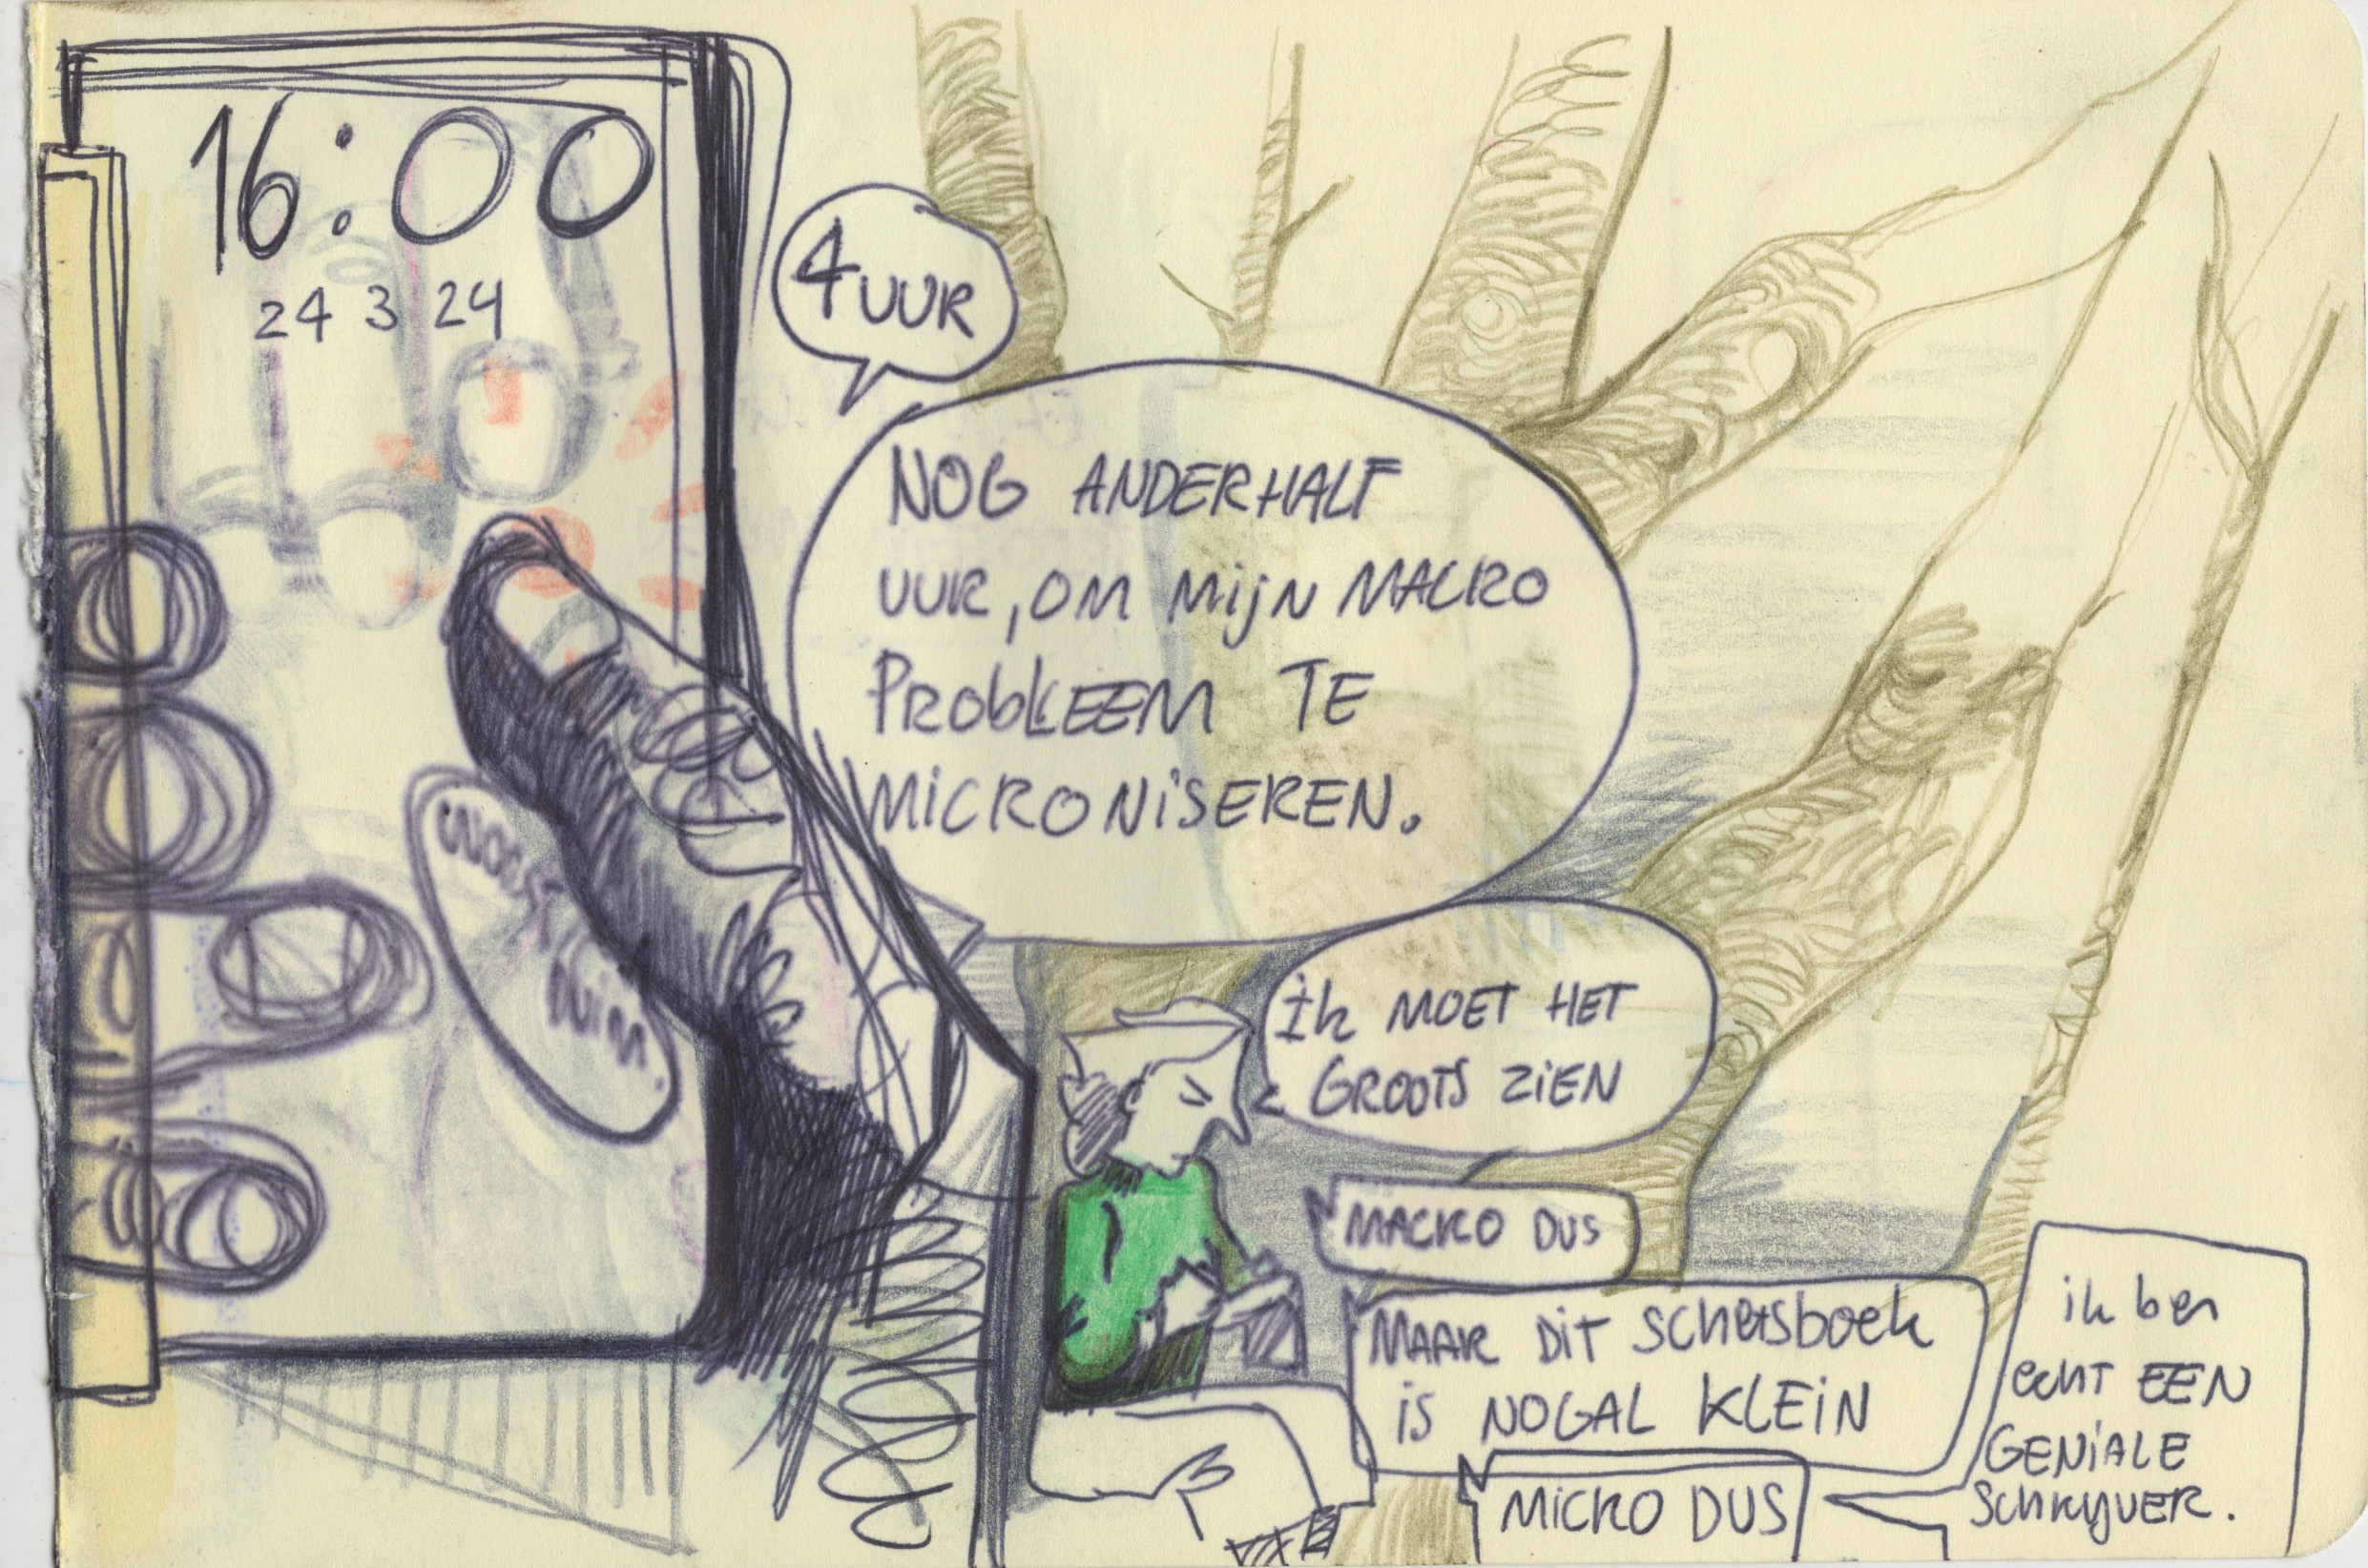 16:00
24 3 24
4 UUR
NOG ANDERHALF
UUR, OM MIJN MACRO
PROBLEEM TE
MICRONISEREN.
Ik MOET HET
GROOTS ZIEN
MACRO DUS
MAAR DIT SCHETSBOEK
IS NOGAL KLEIN
MICRO DUS
ik ben
echt EEN
GENIALE
SCHRIJVER.